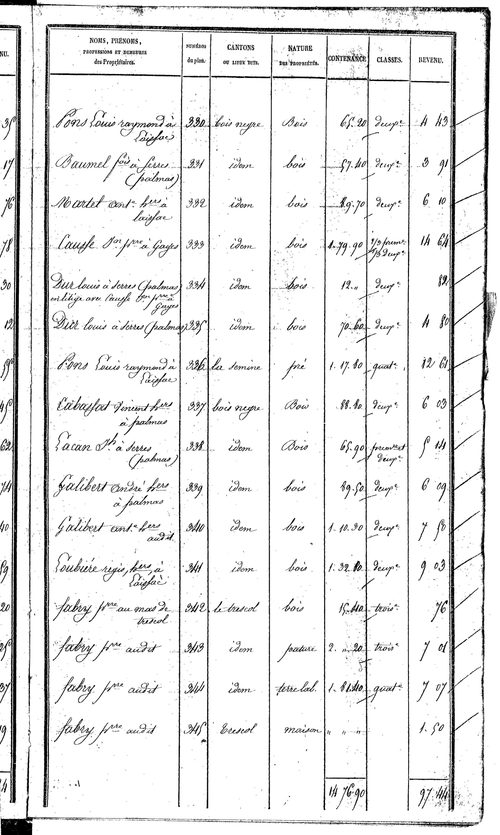 NOMS, PRÉNOMS, PROFESSIONS ET DEMEURES des Propriétaires. NUMÉROS du plan. CANTONS OU LIEUX DITS. NATURE DES PROPRIÉTÉS. CONTENANCE. CLASSES. REVENU.
Pons Louis raymond à Laissac 330 bois negre Bois 65.20 deux.e 4 43
Baumel fois à Serres (palmas) 331 idem bois 57.40 deux.e 3 91
Martet ant.ne hers à laissac 332 idem bois 89.70 deux.e 6 10
Causse pre à Gages 333 idem bois 1.79.90 14 64
Dur louis à Serres (palmas) en litige avec Causse pre à Gages 334 idem bois 12. deux.e 82
Dur louis à Serres (palmas) 335 idem bois 70.60 deux.e 4 80
Pons Louis raymond à Laissac 336 semine pré 1.17.80 quat. 12 61
Cabassat Vincent hers à palmas 337 bois negre Bois 88.80 deux.e 6 03
Lacan à Serres (palmas) 338 idem Bois 65.90 prem. et deux.e 5 14
Galibert andré hers à palmas 339 idem bois 89.50 deux.e 6 09
Galibert ant.ne hers audit 340 idem bois 1.10.30 deux.e 7 50
Loubiére regis, hers, à Laissac 341 idem bois 1.32.80 deux.e 9 03
fabry pre au mas de trescol 342 le trescol bois 15.40 trois.e 76
fabry pre audit 343 idem pature 2. „.20 trois.e 7 01
fabry pre audit 344 idem terre lab. 1.81.40 quat.e 7 07
fabry pre audit 345 Trescol maison „ „ „ 1.50
14 76.90 97.44